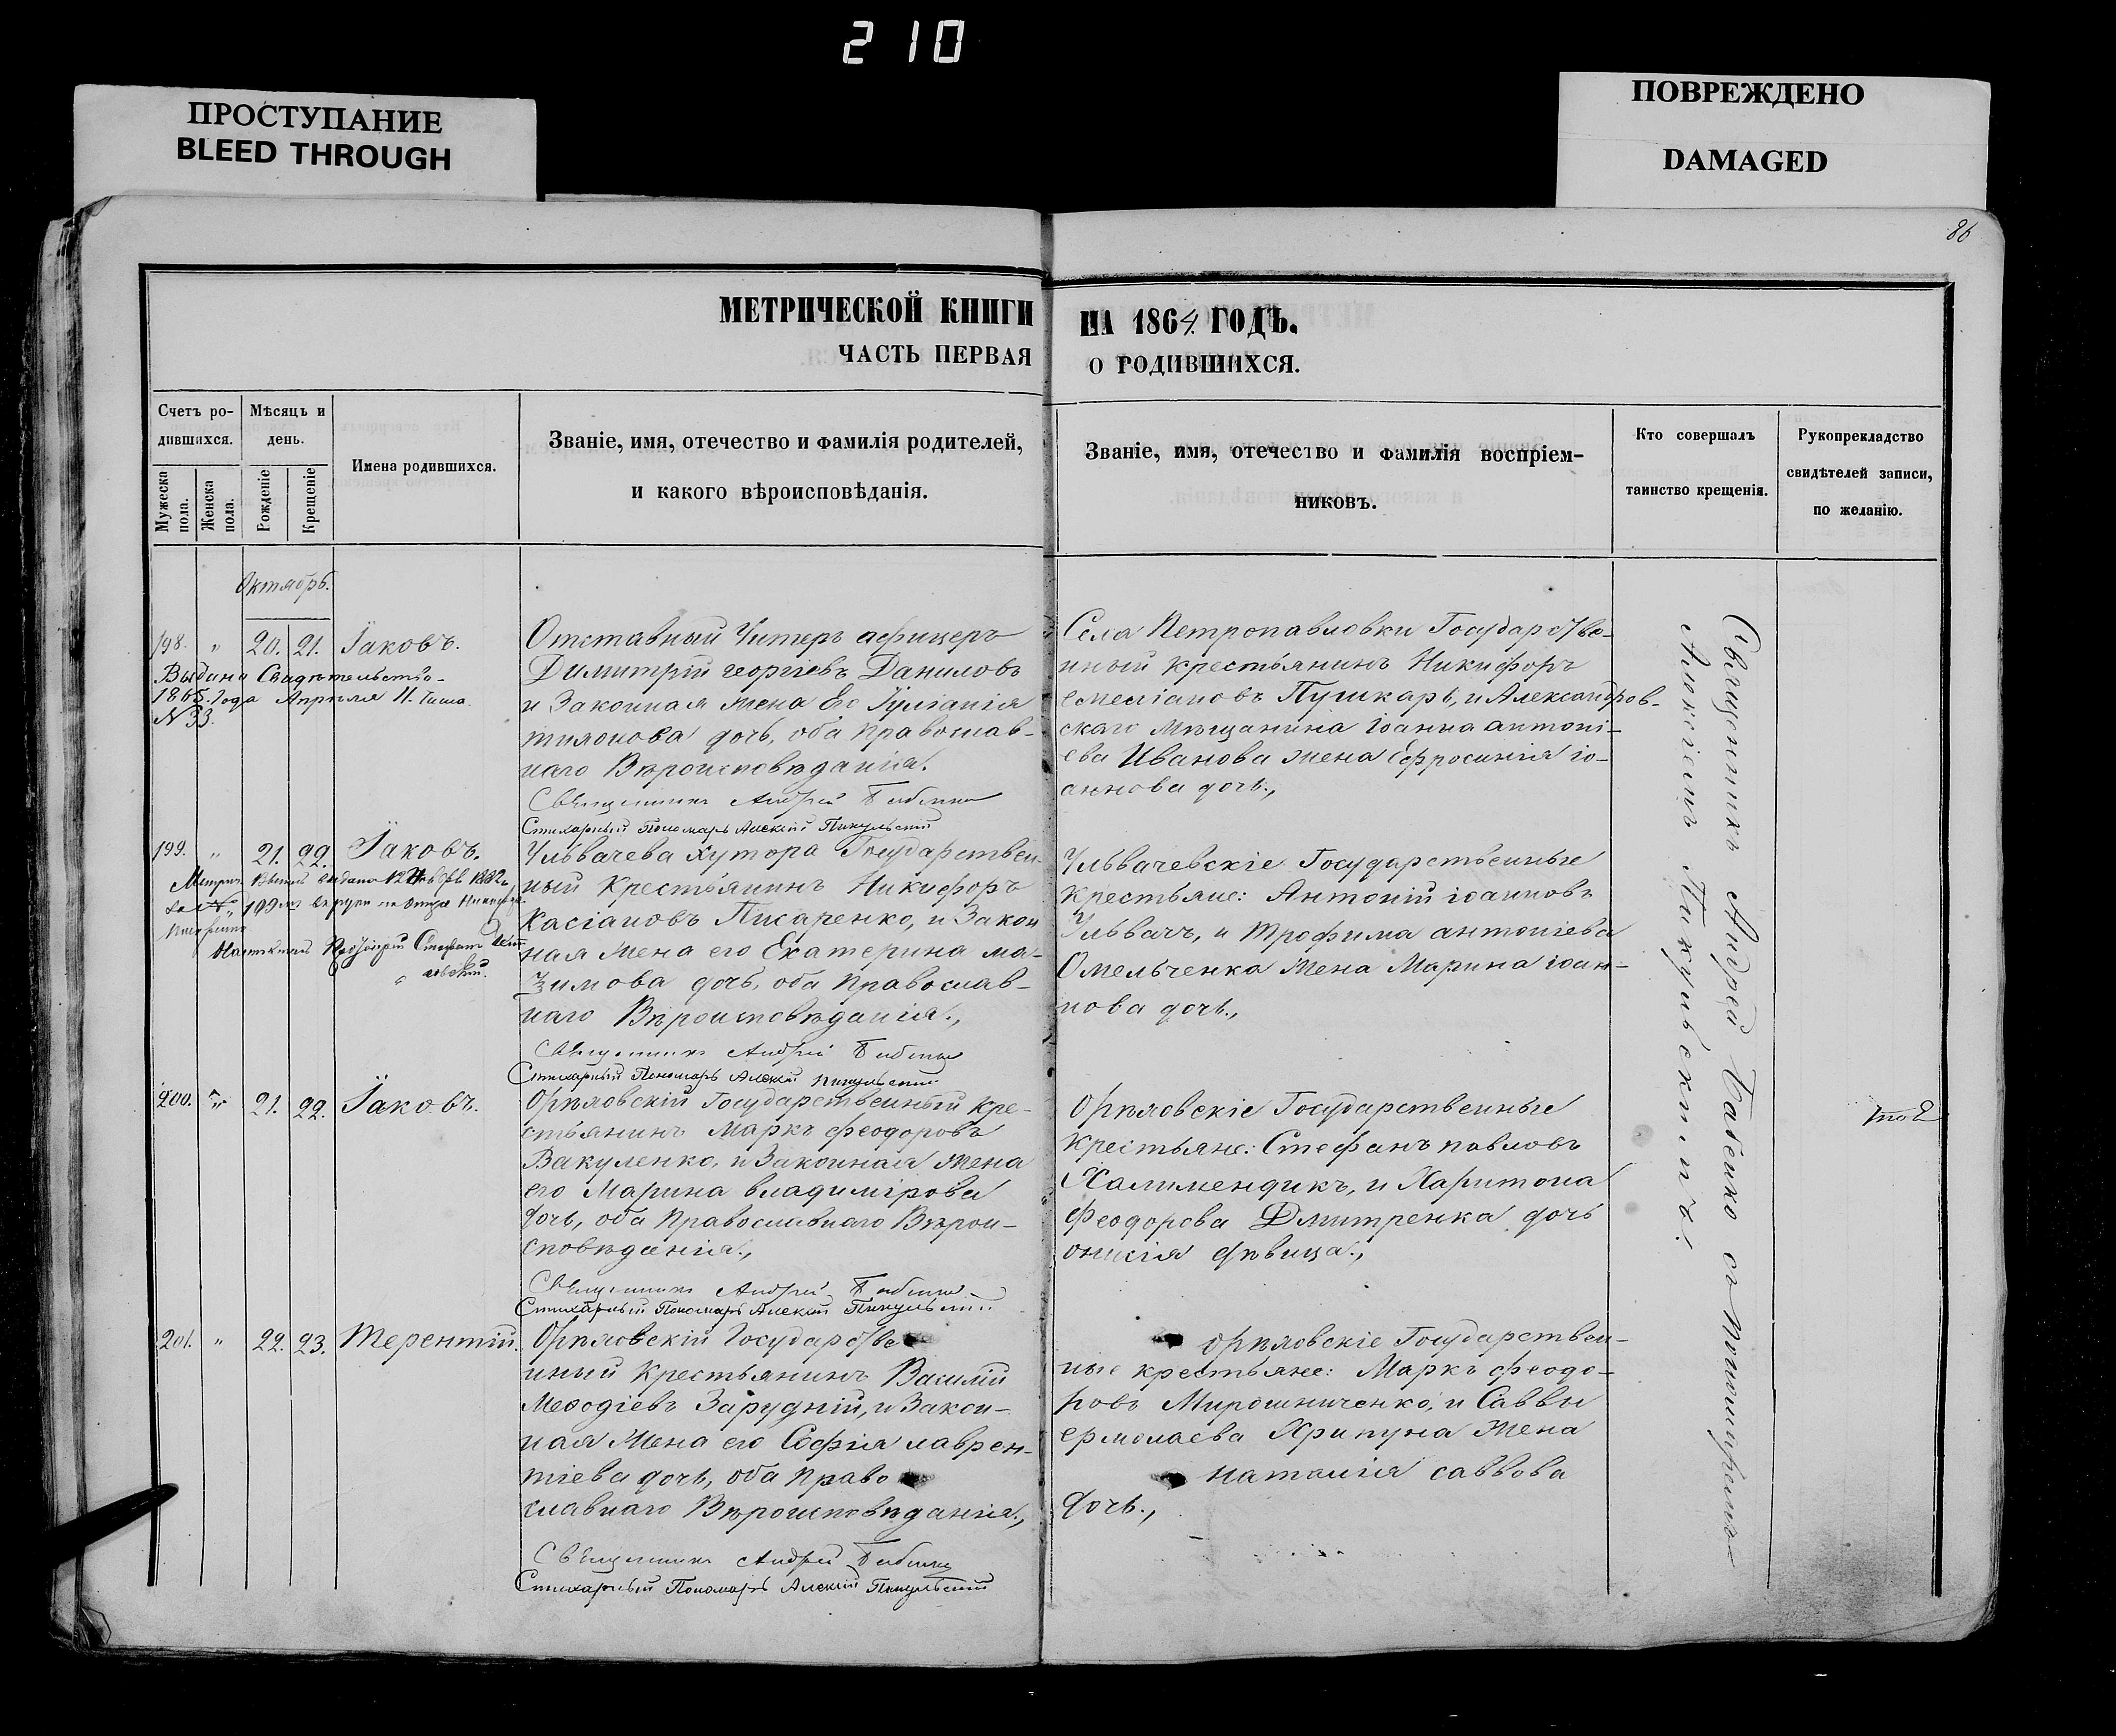 210
ПРОСТУПАНИЕ
BLEED THROUGH
ПОВРЕЖДЕНО
DAMAGED
86
МЕТРИЧЕСКОЙ КНИГИ НА 1864 ГОДЪ.
ЧАСТЬ ПЕРВАЯ О РОДИВШИХСЯ.
Счетъ ро-
дившихся.
Мужеска пола.
Женска пола.
Мѣсяцъ и
день.
Рожденіе
Крещеніе
Имена родившихся.
Званіе, имя, отечество и фамилія родителей,
и какого вѣроисповѣданія.
Званіе, имя, отечество и фамилія воспріем-
никовъ.
Кто совершалъ
таинство крещенія.
Рукоприкладство
свидѣтелей записи,
по желанію.
Октябрь.
198. " 20. 21. Іаковъ.
Выдано Свидѣтельство
1865. Года Апрѣля 11.
N 33.
Отставный Унтеръ афицеръ
Димитрій георгіевъ Даниловъ
и Законная жена Его Іуліанія
тимонова дочь, оба православ-
наго Вѣроисповѣданія.
Священникъ Андрей Бабенко
Стихарный Пономарь Алексій Пикульскій
Села Петропавловки Государстве-
нный крестьянинъ Никифоръ
емеліановъ Пушкарь, и Александров-
скаго Мѣщанина Іоанна антоні-
ева Иванова жена Ефросинія іо-
аннова дочь.,
199. " 21. 22. Іаковъ.
Ульвачева Хутора Государствен-
ный Крестьянинъ Никифоръ
Касіановъ Писаренко, и Закон
ная жена его Екатерина ма-
зимова дочь, оба Православ-
наго Вѣроисповѣданія.,
Священникъ Андрей Бабенко
Стихарный Пономарь Алексій Пикульскій
Ульвачевскіе Государственные
Крестьяне: Антоній іоанновъ
Ульвачъ, и Трофима антоніева
Омельченка жена Марина іоан-
нова дочь.,
200. " 21. 22. Іаковъ.
Орѣловскій Государственный кре-
стьянинъ Маркъ феодоровъ
Вакуленко, и Законная жена
его Марина владимірова
дочь, оба Православнаго Вѣрои-
сповѣданія.,
Священникъ Андрей Бабенко
Стихарный Пономарь Алексій Пикульскій
Орѣловскіе Государственные
Крестьяне: Стефанъ павловъ
Халимендикъ, и Харитона
Феодорова Дмитренка дочь
онисія дѣвица.,
201. " 22. 23. Терентій.
Орѣловскій Государстве
нный Крестьянинъ Василій
Меѳодіевъ Зарудній, и Закон-
ная жена его Софія лаврен-
тіева дочь, оба Право
славнаго Вѣроисповѣданія.,
Священникъ Андрей Бабенко
Стихарный Пономарь Алексій Пикульскій
орѣловскіе Государствен-
ные крестьяне: Маркъ феодо-
ровъ Мирошниченко, и Саввы
ермолаева Хрипуна жена
наталія саввова
дочь.,
Священникъ Андрей Бабенко съ Пономаремъ
Алексіемъ Пикульскимъ.